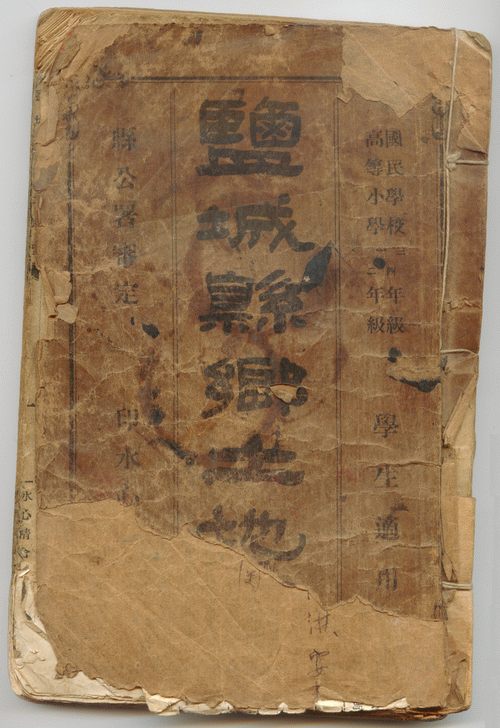 國民學校四年級
高等小學一二年級
學生適用
鹽城縣鄉土地
縣公署審定
印水心
洪
安